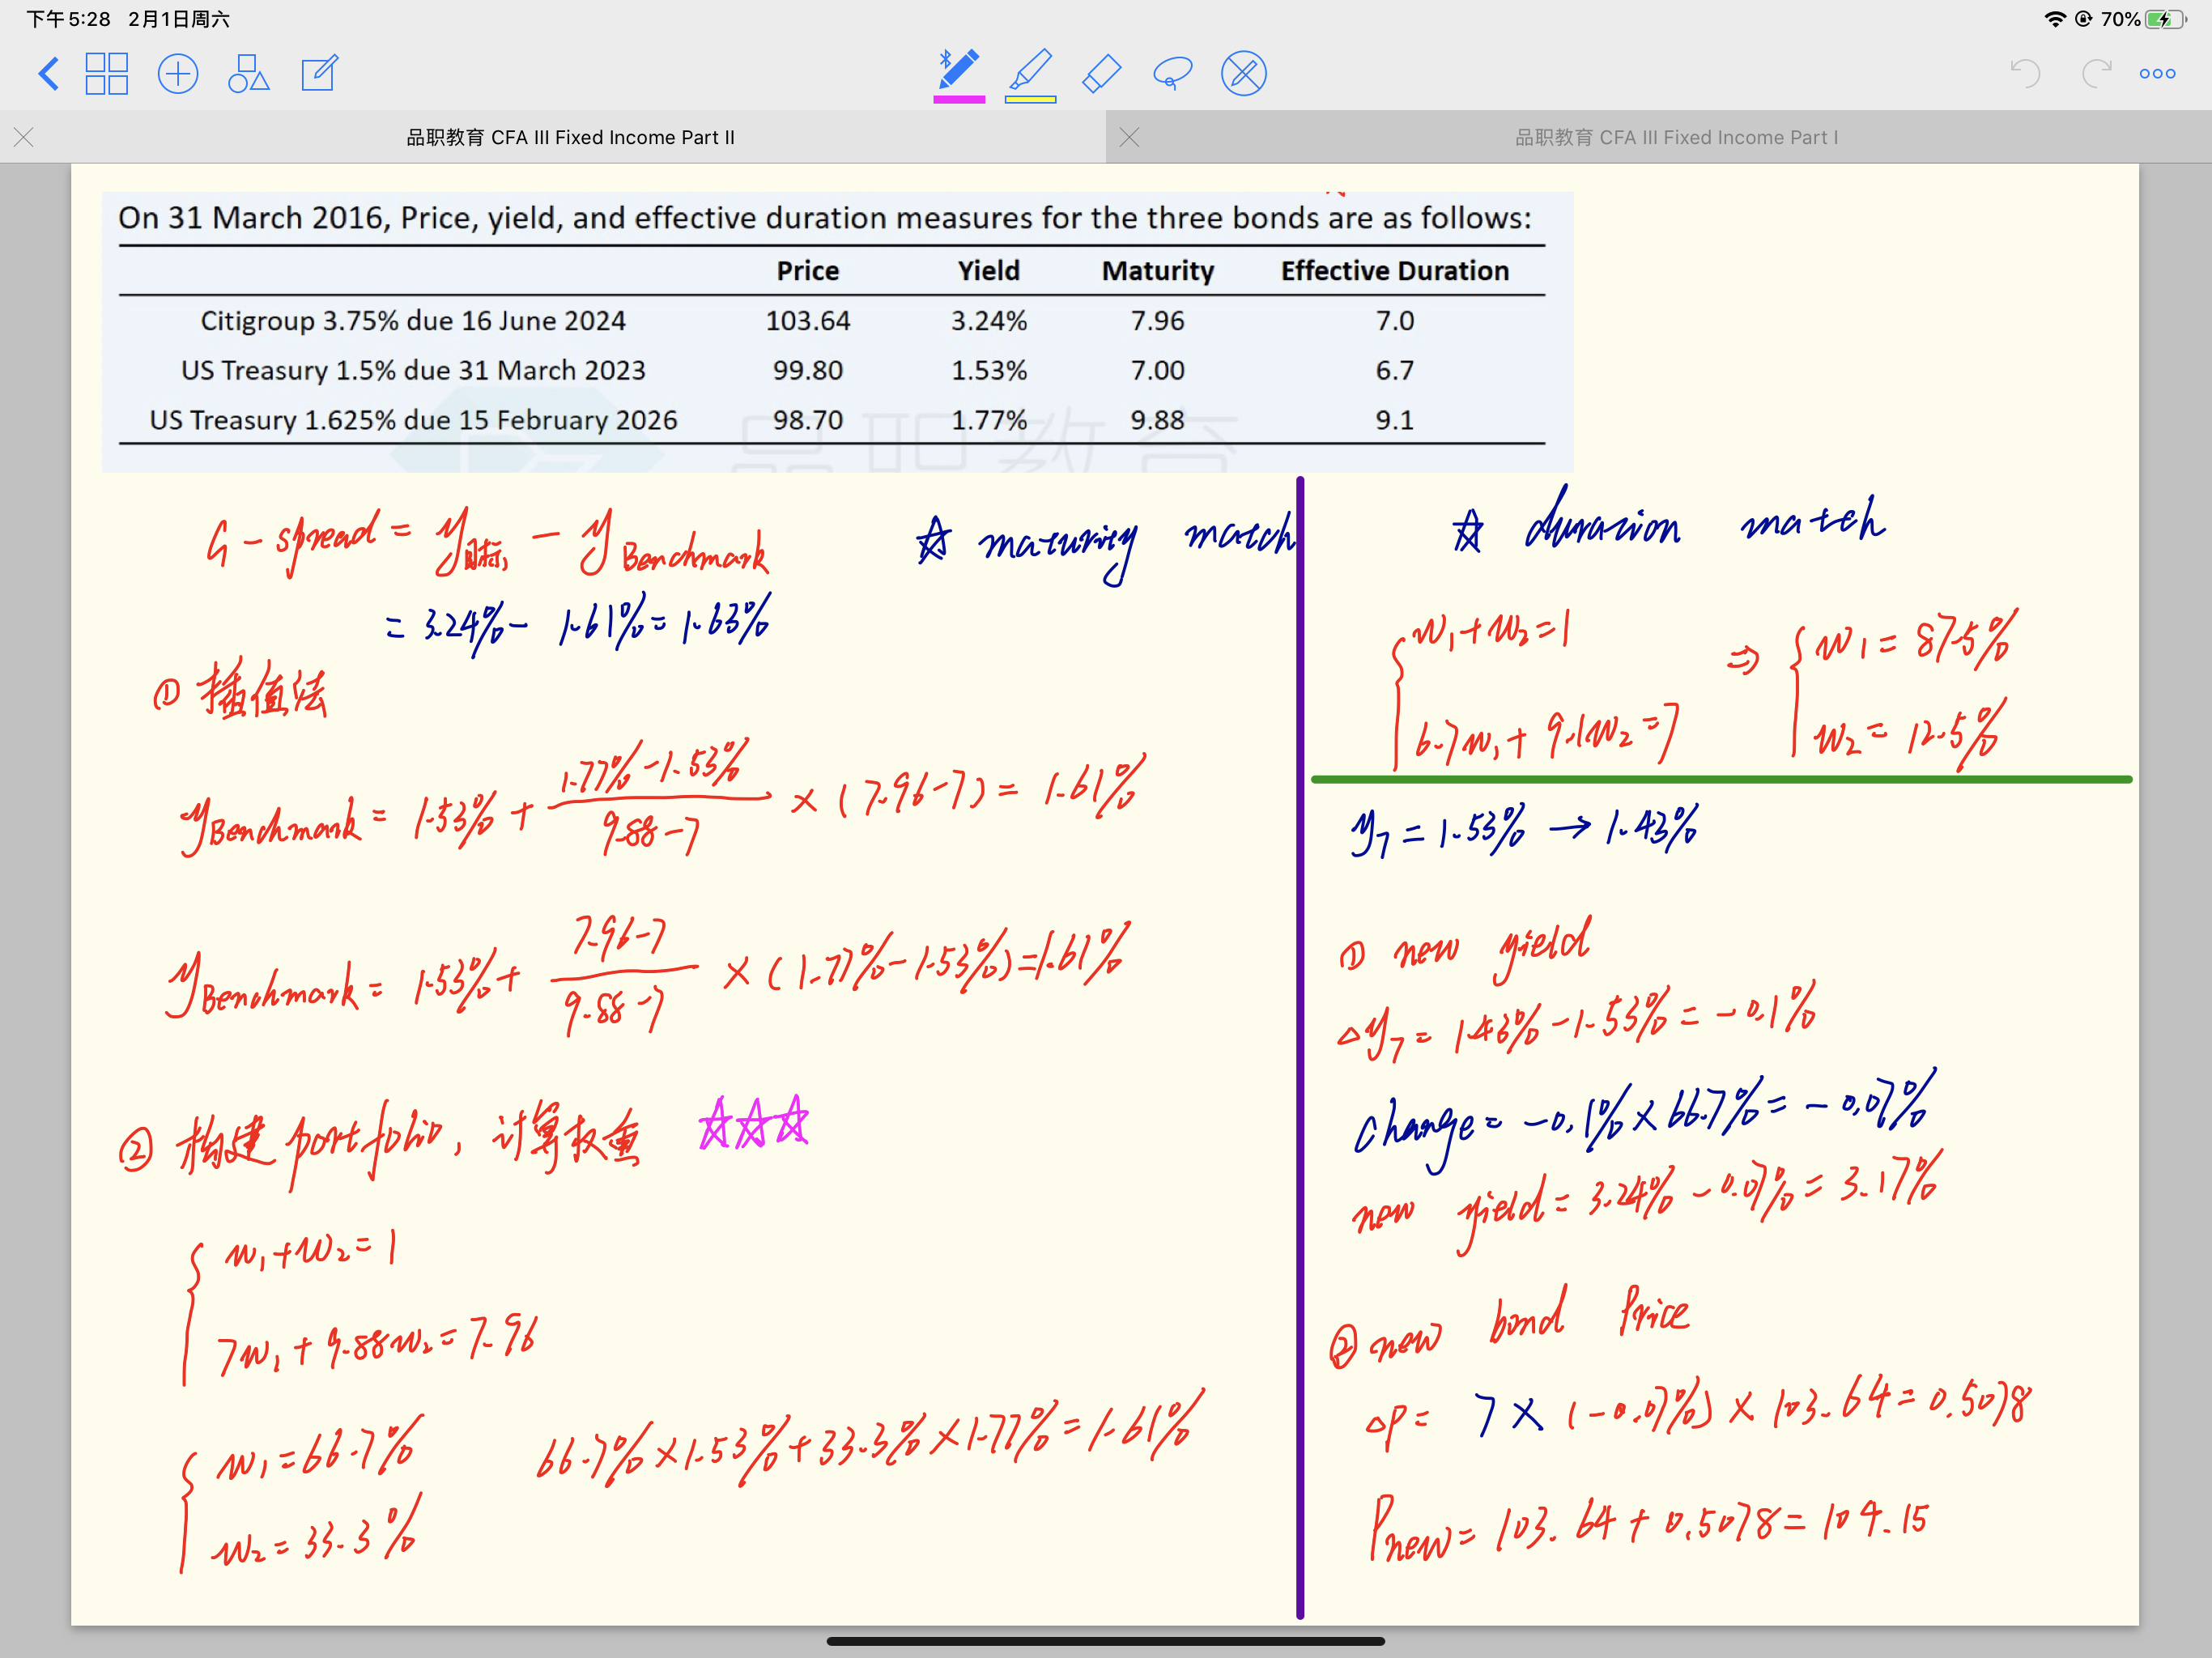 下午5:28 2月1日周六
70%
品职教育 CFA III Fixed Income Part II
品职教育 CFA III Fixed Income Part I
On 31 March 2016, Price, yield, and effective duration measures for the three bonds are as follows:
Price Yield Maturity Effective Duration
Citigroup 3.75% due 16 June 2024 103.64 3.24% 7.96 7.0
US Treasury 1.5% due 31 March 2023 99.80 1.53% 7.00 6.7
US Treasury 1.625% due 15 February 2026 98.70 1.77% 9.88 9.1
品职教育
G-spread = y - y Benchmark
☆ maturity match
= 3.24% - 1.61% = 1.63%
① 插值法
yBenchmark = 1.53% + (1.77% - 1.53%)/(9.88-7) × (7.96-7) = 1.61%
yBenchmark = 1.53% + (7.96-7)/(9.88-7) × (1.77% - 1.53%) = 1.61%
② 构建 portfolio, 计算权重 ☆☆☆
w₁+w₂=1
7w₁ + 9.88w₂ = 7.96
w₁ = 66.7%
w₂ = 33.3%
66.7% × 1.53% + 33.3% × 1.77% = 1.61%
☆ duration match
w₁+w₂=1
6.7w₁ + 9.1w₂ = 7
⇒ w₁ = 87.5%
w₂ = 12.5%
y₇ = 1.53% → 1.43%
① new yield
△y₇ = 1.43% - 1.53% = -0.1%
change = -0.1% × 66.7% = -0.07%
new yield = 3.24% - 0.07% = 3.17%
② new bond Price
△P = 7 × (-0.07%) × 103.64 = 0.5078
Pnew = 103.64 + 0.5078 = 104.15